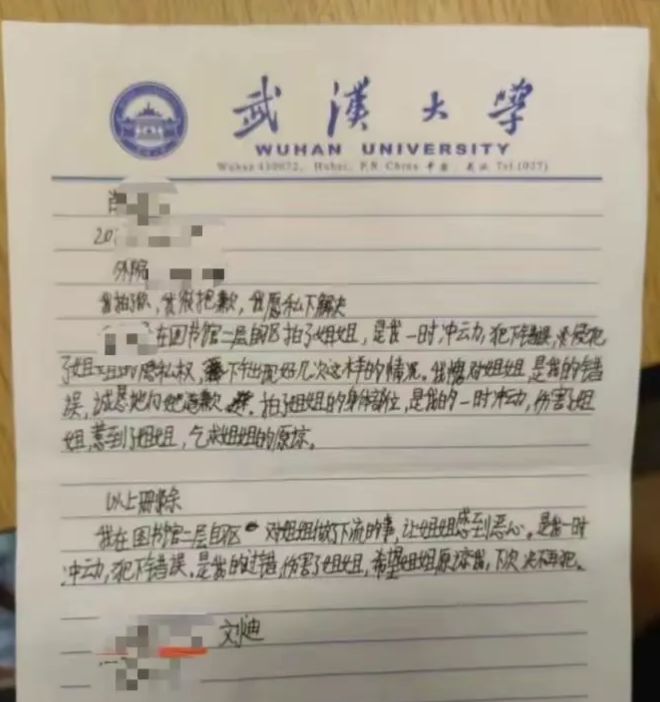 武漢大學
WUHAN UNIVERSITY
Wuhan 430072, Hubei, P.R. China 中国·武汉 Tel.(027)
肖
20
外院
我拍了你，我很抱歉，我愿私下解决
在图书馆二层自区拍了姐姐，是我一时冲动，犯下错误，侵犯
了姐姐的隐私权，私下出现好几次这样的情况。我愧对姐姐，是我的错
误，诚恳地向她道歉，拍了姐姐的身体部位，是我的一时冲动，伤害了姐
姐，惹到了姐姐，乞求姐姐的原谅。
以上删除
我在图书馆二层自区 对姐姐做了下流的事，让姐姐感到恶心。是我一时
冲动，犯下错误。是我的过错，伤害了姐姐，希望姐姐原谅我，下次决不再犯。